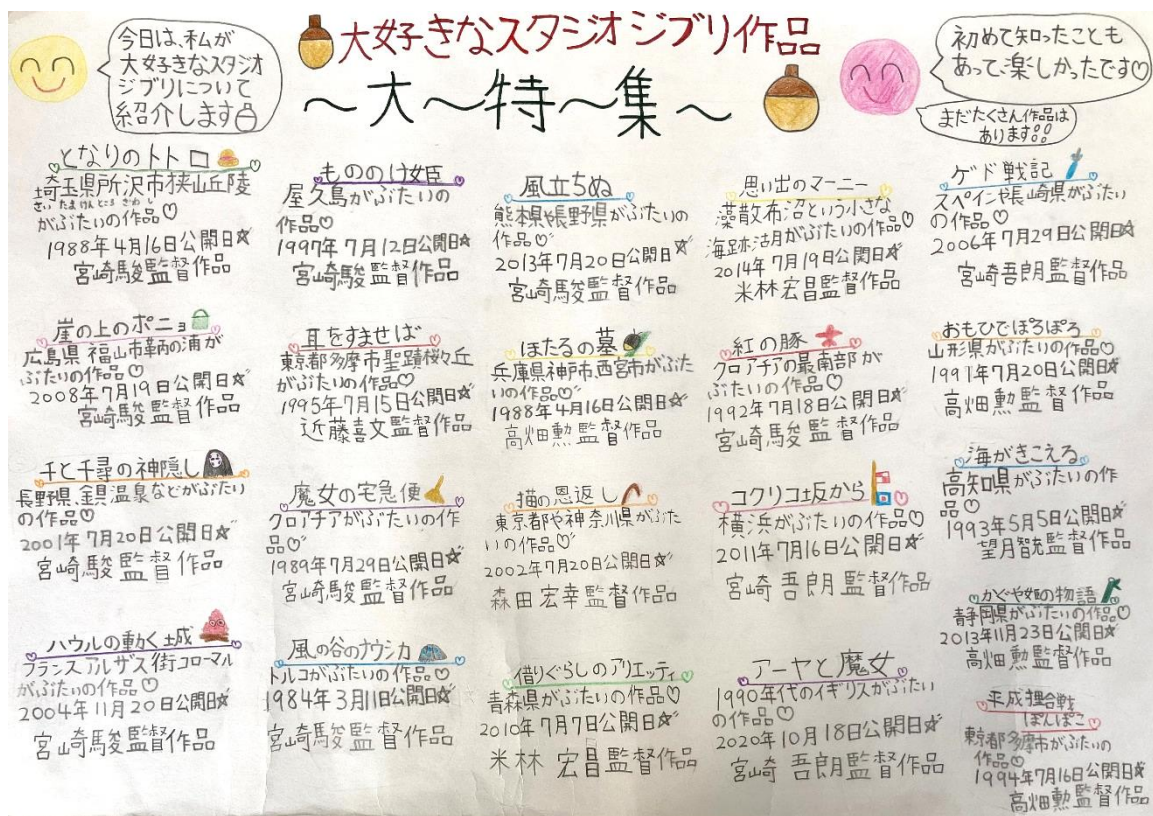 今日は、私が
大好きなスタジオ
ジブリについて
紹介します
大好きなスタジオジブリ作品
～大～特～集～
初めて知ったことも
あって、楽しかったです♡
まだたくさん作品は
あります!!
となりのトトロ
埼玉県所沢市狭山丘陵
さいたまけんところざわし
がぶたいの作品♡
1988年4月16日公開日☆
宮崎駿監督作品
崖の上のポニョ
広島県福山市鞆の浦が
ぶたいの作品♡
2008年7月19日公開日☆
宮崎駿監督作品
千と千尋の神隠し
長野県、金具温泉などがぶたい
の作品♡
2001年7月20日公開日☆
宮崎駿監督作品
ハウルの動く城
フランスアルザス街コローマル
がぶたいの作品♡
2004年11月20日公開日☆
宮崎駿監督作品
もののけ姫
屋久島がぶたいの
作品♡
1997年7月12日公開日☆
宮崎駿監督作品
耳をすませば
東京都多摩市聖蹟桜ヶ丘
がぶたいの作品♡
1995年7月15日公開日☆
近藤喜文監督作品
魔女の宅急便
クロアチアがぶたいの作
品♡
1989年7月29日公開日☆
宮崎駿監督作品
風の谷のナウシカ
トルコがぶたいの作品♡
1984年3月11日公開日☆
宮崎駿監督作品
風立ちぬ
熊本県や長野県がぶたいの
作品♡
2013年7月20日公開日☆
宮崎駿監督作品
ほたるの墓
兵庫県神戸市、西宮市がぶた
いの作品♡
1988年4月16日公開日☆
高畑勲監督作品
猫の恩返し
東京都や神奈川県がぶた
いの作品♡
2002年7月20日公開日☆
森田宏幸監督作品
借りぐらしのアリエッティ
青森県がぶたいの作品♡
2010年7月7日公開日☆
米林宏昌監督作品
思い出のマーニー
藻散布沼という小さな
海跡沼がぶたいの作品♡
2014年7月19日公開日☆
米林宏昌監督作品
紅の豚
クロアチアの最南部が
ぶたいの作品♡
1992年7月18日公開日☆
宮崎駿監督作品
コクリコ坂から
横浜がぶたいの作品♡
2011年7月16日公開日☆
宮崎吾朗監督作品
アーヤと魔女
1990年代のイギリスがぶたい
の作品♡
2020年10月18日公開日☆
宮崎吾朗監督作品
ゲド戦記
スペインや長崎県がぶたい
の作品♡
2006年7月29日公開日☆
宮崎吾朗監督作品
おもひでぽろぽろ
山形県がぶたいの作品♡
1991年7月20日公開日☆
高畑勲監督作品
海がきこえる
高知県がぶたいの作
品♡
1993年5月5日公開日☆
望月智充監督作品
かぐや姫の物語
静岡県がぶたいの作品♡
2013年11月23日公開日☆
高畑勲監督作品
平成狸合戦
ぽんぽこ
東京都多摩市がぶたいの
作品♡
1994年7月16日公開日☆
高畑勲監督作品